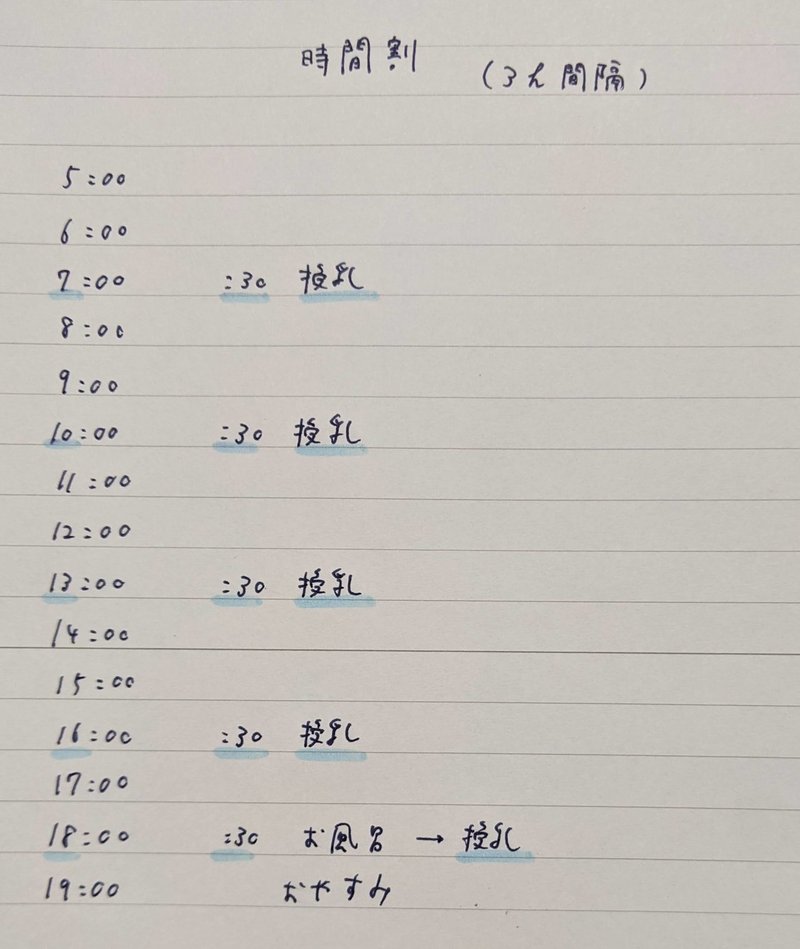 時間割 (3h間隔)
5:00
6:00
7:00 :30 授乳
8:00
9:00
10:00 :30 授乳
11:00
12:00
13:00 :30 授乳
14:00
15:00
16:00 :30 授乳
17:00
18:00 :30 お風呂 → 授乳
19:00 おやすみ